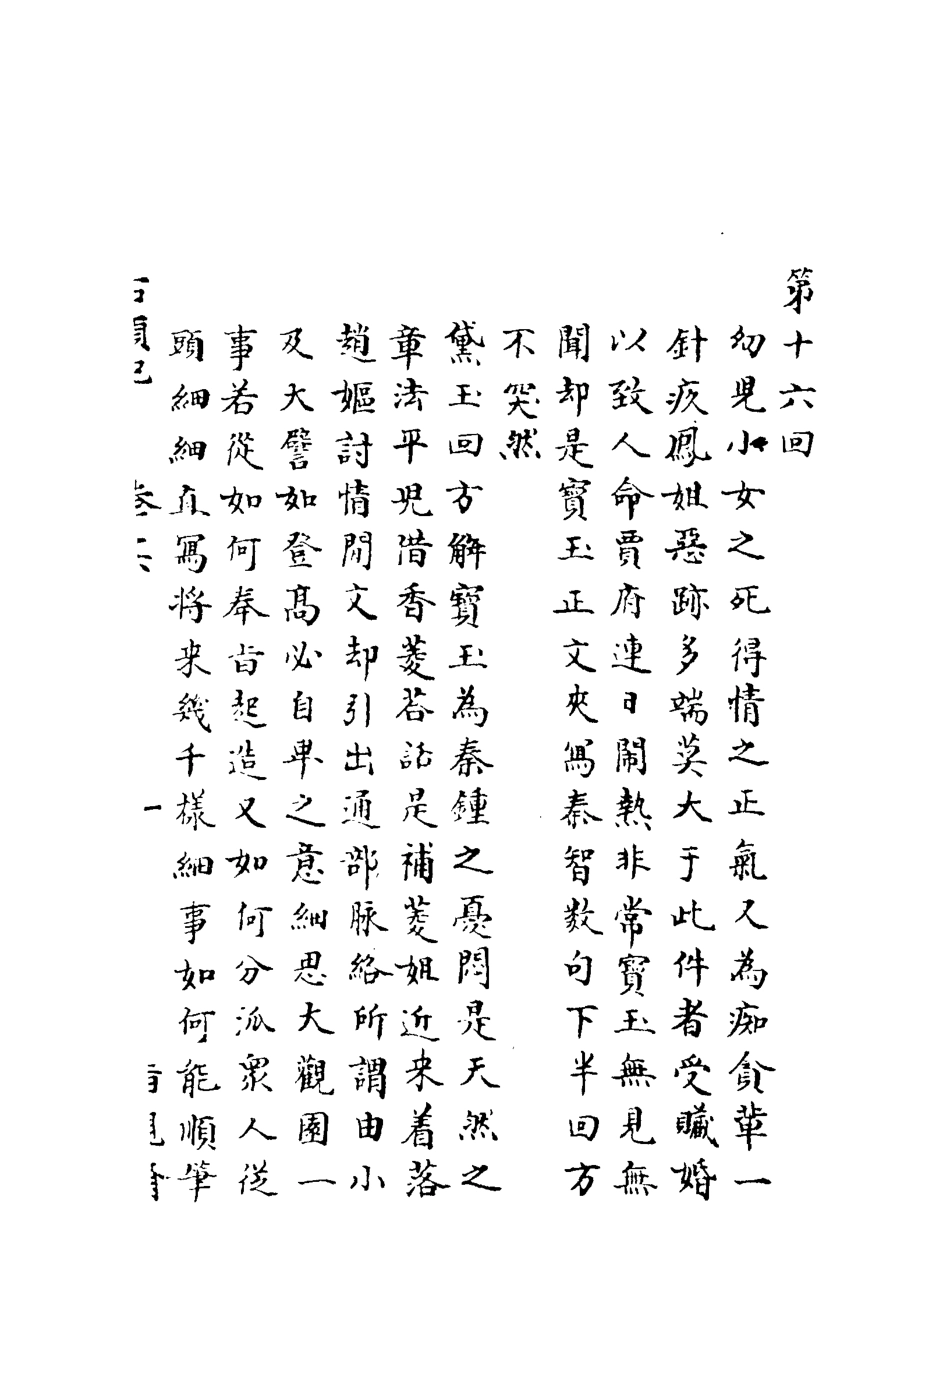 第十六回
幻児小女之死得情之正氣又為痴貪輩一
針疚鳳姐惡跡多端莫大于此件者受贓婚
以致人命賈府連日鬧熱非常寳玉無見無
聞却是寳玉正文夾寫秦智数句下半回方
不突然
黛玉回方解寳玉為秦鍾之憂悶是天然之
章法平児借香菱荅話是補菱姐近来着落
趙嫗討情閒文却引出通部脉絡所謂由小
及大譬如登髙必自卑之意細思大觀園一
事若從如何奉旨起造又如何分派衆人從
頭細細直寫将来幾千樣細事如何能順筆
石頭記 卷十六 一